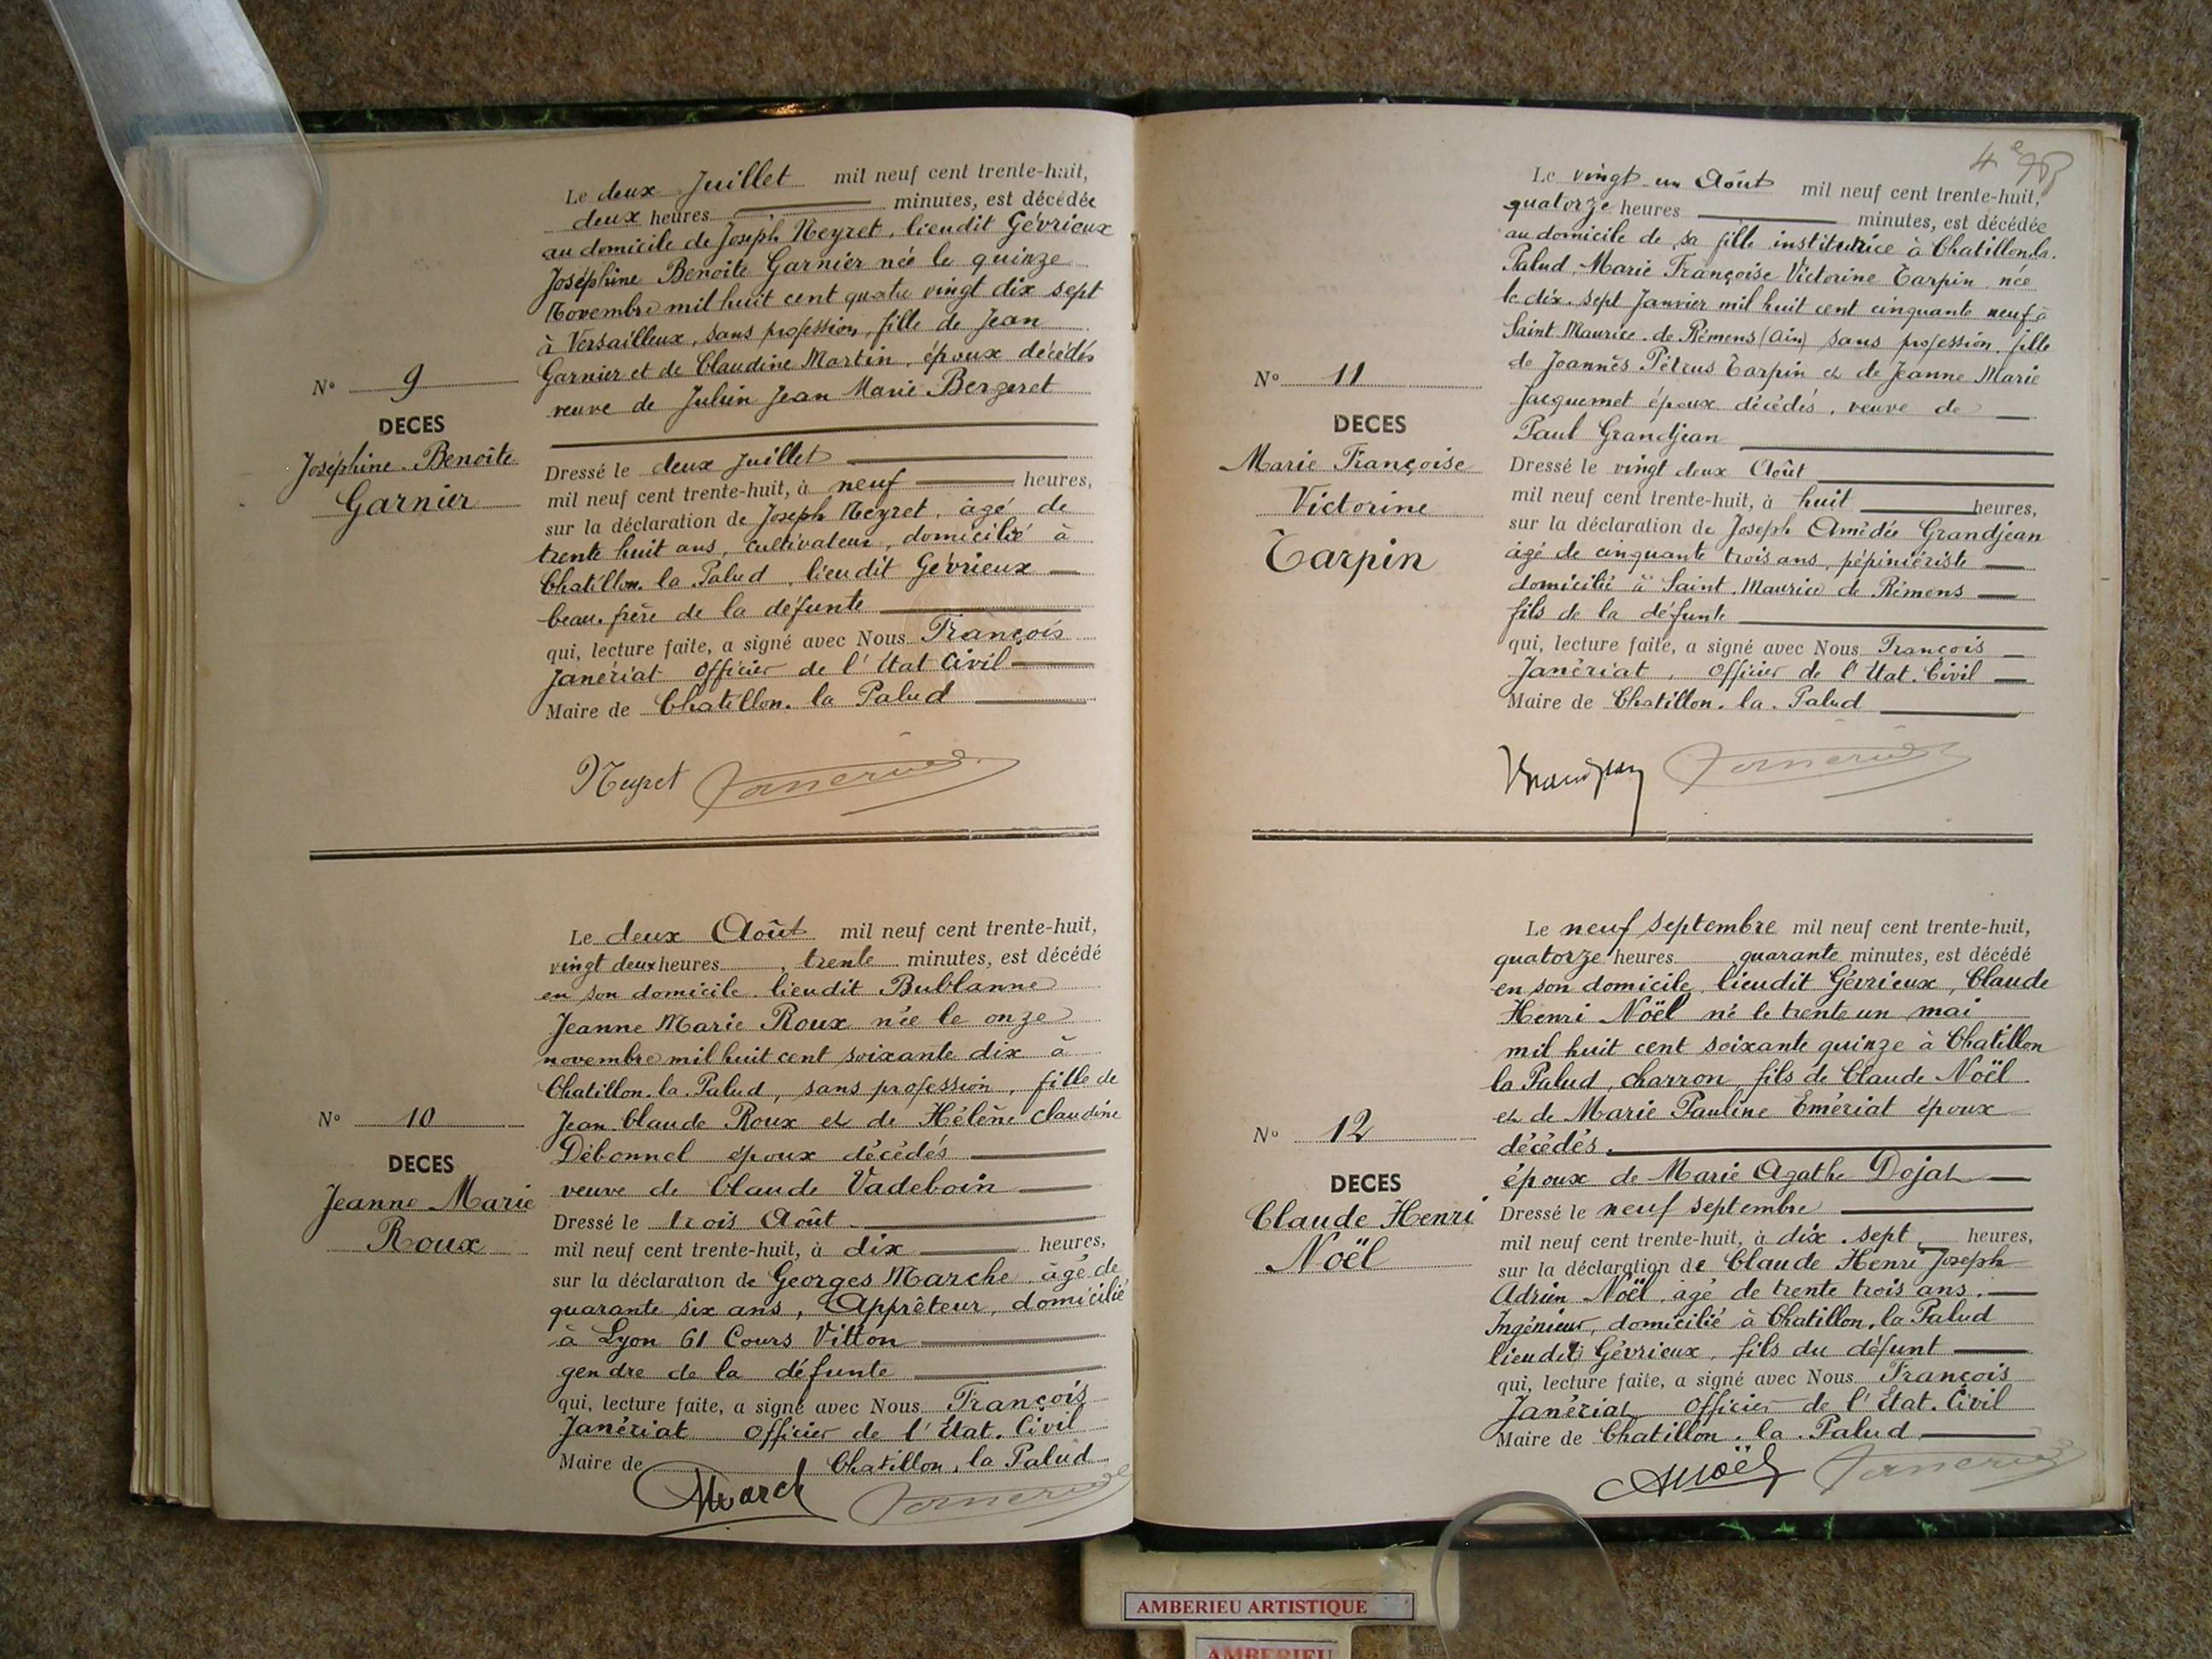 Le deux Juillet mil neuf cent trente-huit,
deux heures minutes, est décédée
au domicile de Joseph Neyret, lieudit Gévrieux
Joséphine Benoite Garnier née le quinze
Novembre mil huit cent quatre vingt dix sept
à Versailleux, sans profession, fille de Jean
Garnier et de Claudine Martin, époux décédés
veuve de Julien Jean Marie Bergeret
N° 9
DECES
Joséphine Benoîte
Garnier
Dressé le deux Juillet
mil neuf cent trente-huit, à neuf heures,
sur la déclaration de Joseph Neyret, âgé de
trente huit ans, cultivateur, domicilié à
Chatillon la Palud, lieudit Gévrieux
beau-frère de la défunte
qui, lecture faite, a signé avec Nous François
Janériat Officier de l'Etat Civil
Maire de Chatillon. la Palud
Neyret
Le deux Août mil neuf cent trente-huit,
vingt deux heures, trente minutes, est décédé
en son domicile lieudit Bublanne
Jeanne Marie Roux née le onze
novembre mil huit cent soixante dix à
Chatillon. la. Palud, sans profession, fille de
Jean Claude Roux et de Hélène Claudine
Débonnel époux décédés
veuve de Claude Vadeboin
N° 10
DECES
Jeanne Marie
Roux
Dressé le trois Août
mil neuf cent trente-huit, à dix heures,
sur la déclaration de Georges Marche, âgé de
quarante six ans, Apprêteur, domicilié
à Lyon 61 Cours Vitton
gendre de la défunte
qui, lecture faite, a signé avec Nous François
Janériat Officier de l'Etat. Civil
Maire de Chatillon. la Palud
March
4e
Le vingt un Août mil neuf cent trente-huit,
quatorze heures minutes, est décédée
au domicile de sa fille institutrice à Chatillon. la.
Palud, Marie Françoise Victorine Tarpin, née
le dix. sept Janvier mil huit cent cinquante neuf à
Saint Maurice. de Rémens (Ain) sans profession, fille
de Joannès Péteus Tarpin et de Jeanne Marie
Jacquemet époux décédés, veuve de
Paul Grandjean
N° 11
DECES
Marie Françoise
Victorine
Tarpin
Dressé le vingt deux Août
mil neuf cent trente-huit, à huit heures,
sur la déclaration de Joseph Amédée Grandjean
âgé de cinquante trois ans, pépiniériste
domicilié à Saint. Maurice de Rémens
fils de la défunte
qui, lecture faite, a signé avec Nous François
Janériat, Officier de l'Etat. Civil
Maire de Chatillon. la. Palud
Grandjean
Le neuf Septembre mil neuf cent trente-huit,
quatorze heures quarante minutes, est décédé
en son domicile, lieudit Gévrieux, Claude
Henri Noël né le trente un mai
mil huit cent soixante quinze à Chatillon
la Palud, charron, fils de Claude Noël
et de Marie Pauline Emériat époux
décédés.
époux de Marie Agathe Dojat
N° 12
DECES
Claude Henri
Noël
Dressé le neuf septembre
mil neuf cent trente-huit, à dix. sept heures,
sur la déclaration de Claude Henri Joseph
Adrien Noël, âgé de trente trois ans.
Ingénieur, domicilié à Chatillon. la Palud
lieudit Gévrieux, fils du défunt
qui, lecture faite, a signé avec Nous François
Janériat Officier de l'Etat. Civil
Maire de Chatillon. la. Palud
ANoël
AMBERIEU ARTISTIQUE
AMBERIEU